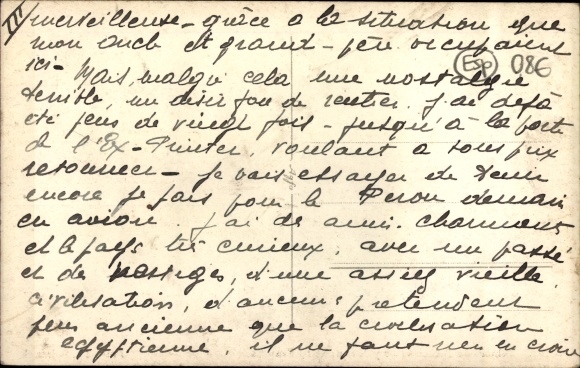 III merveilleuse - grâce à la situation que
mon oncle et grand-père occupaient
ici - Mais, malgré cela une nostalgie Esp 086
terrible, un désir fou de rentrer. J'ai déjà
été plus de vingt fois - jusqu'à la porte
de l'Ex-Printer, voulant à tous prix
retourner - Je vais essayer de tenir
encore je pars pour le Perou demain
en avion. J'ai de amis charmants
et le pays très curieux, avec un passé
et de vestiges, d'une assez vieille
civilisation, d'aucuns pretendent
plus ancienne que la civilisation
egyptienne, il ne faut rien en croire